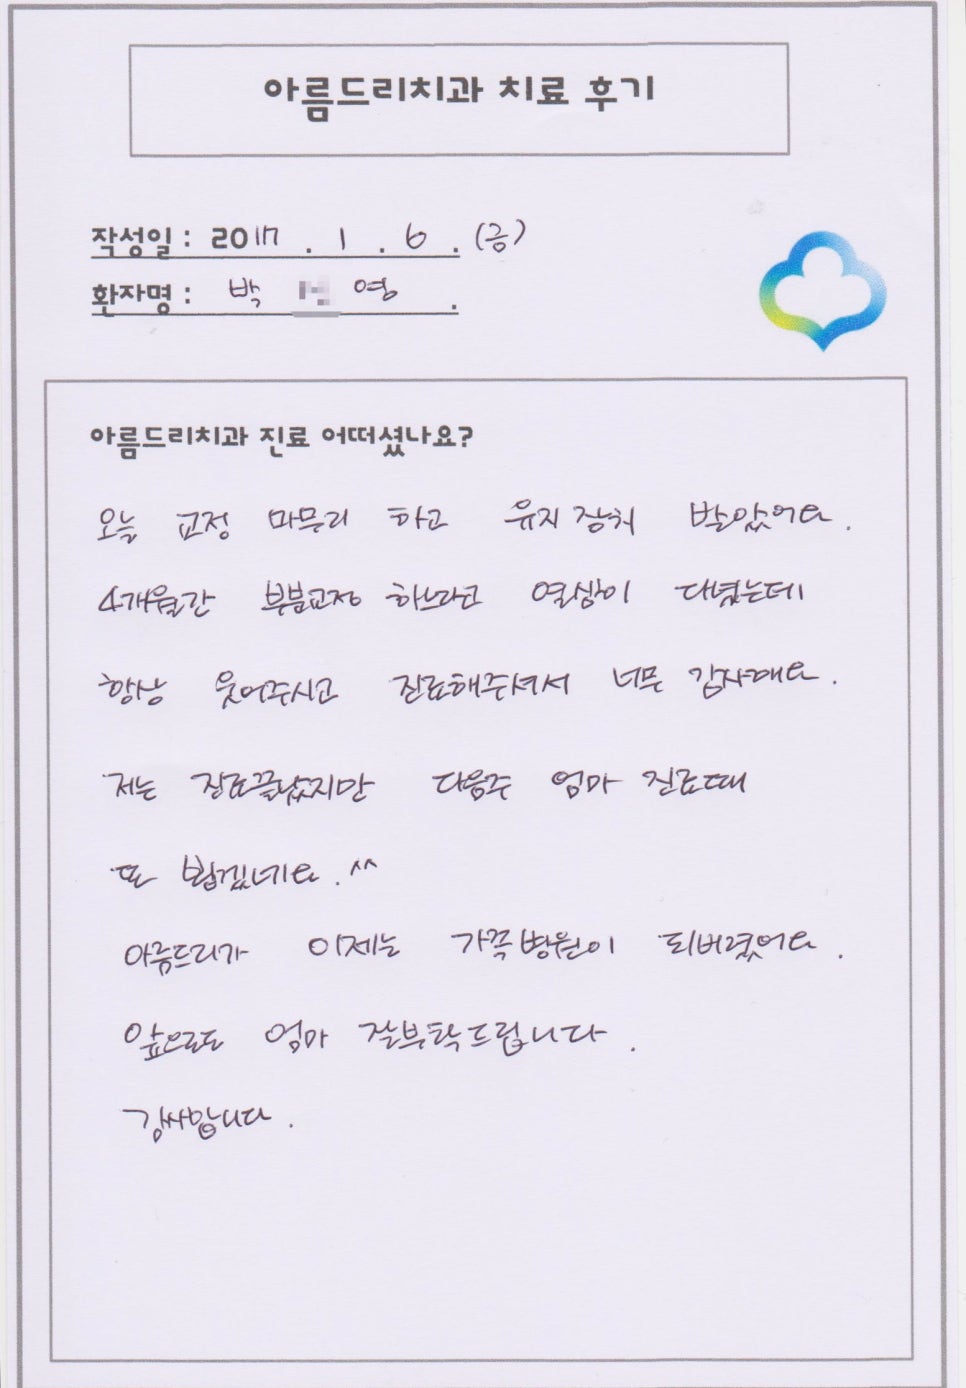 아름드리치과 치료 후기
작성일 : 2017 . 1 . 6 . (금)
환자명 : 박 영 .
아름드리치과 진료 어떠셨나요?
오늘 교정 마무리 하고 유지장치 받았어요.
4개월간 부분교정 하느라고 열심히 다녔는데
항상 웃어주시고 진료해주셔서 너무 감사해요.
저는 진료끝났지만 다음주 엄마 진료때
또 뵙겠네요. ^^
아름드리가 이제는 가족병원이 되버렸어요.
앞으로도 엄마 잘부탁드립니다.
감사합니다.